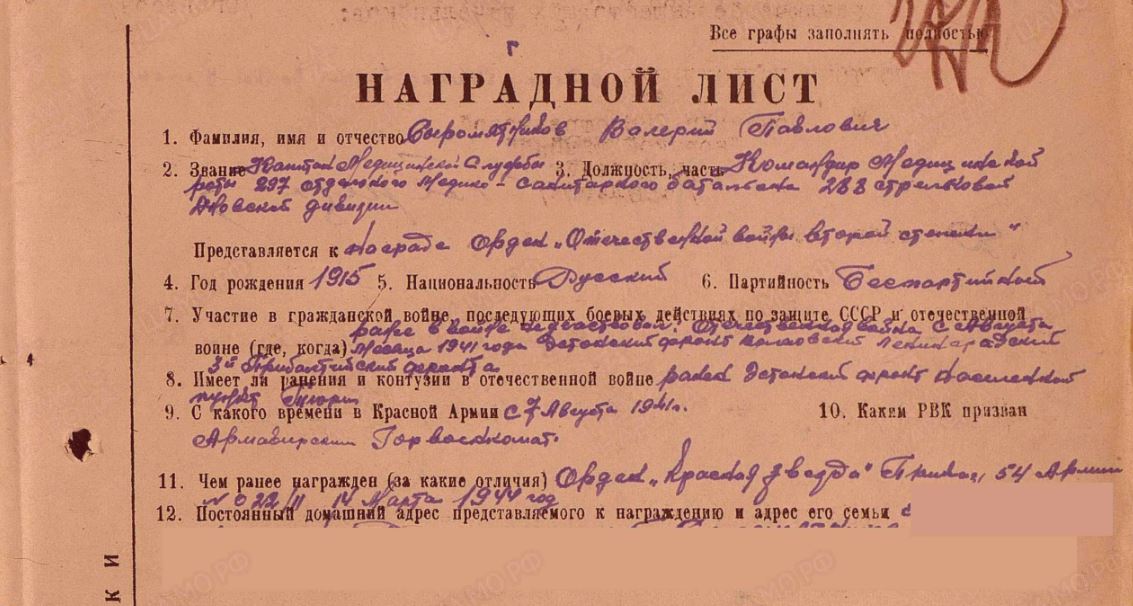 Все графы заполнять полностью
НАГРАДНОЙ ЛИСТ
1. Фамилия, имя и отчество Сыромятников Валерий Павлович
2. Звание Капитан Медицинской Службы 3. Должность, часть Командир Медицинской
роты 297 отдельного Медико-санитарного батальона 288 стрелковой
Дновской дивизии
Представляется к награде Орден „Отечественной войны второй степени"
4. Год рождения 1915 5. Национальность Русский 6. Партийность Беспартийной
7. Участие в гражданской войне, последующих боевых действиях по защите СССР и отечественной
ранее в войне не участвовал. Отечественная война с Августа
войне (где, когда) месяца 1941 года Эстонский фронт Ленинградский
3й Прибалтийский фронта
8. Имеет ли ранения и контузии в отечественной войне ранен Эстонский фронт населенной
пункт
9. С какого времени в Красной Армии с 7 Августа 1941г. 10. Каким РВК призван
Армавирским Горвоенкомат.
11. Чем ранее награжден (за какие отличия) Орден „Красная звезда" Приказ 54 Армии
N 022/н 14 Марта 1944 год
12. Постоянный домашний адрес представляемого к награждению и адрес его семьи
К И